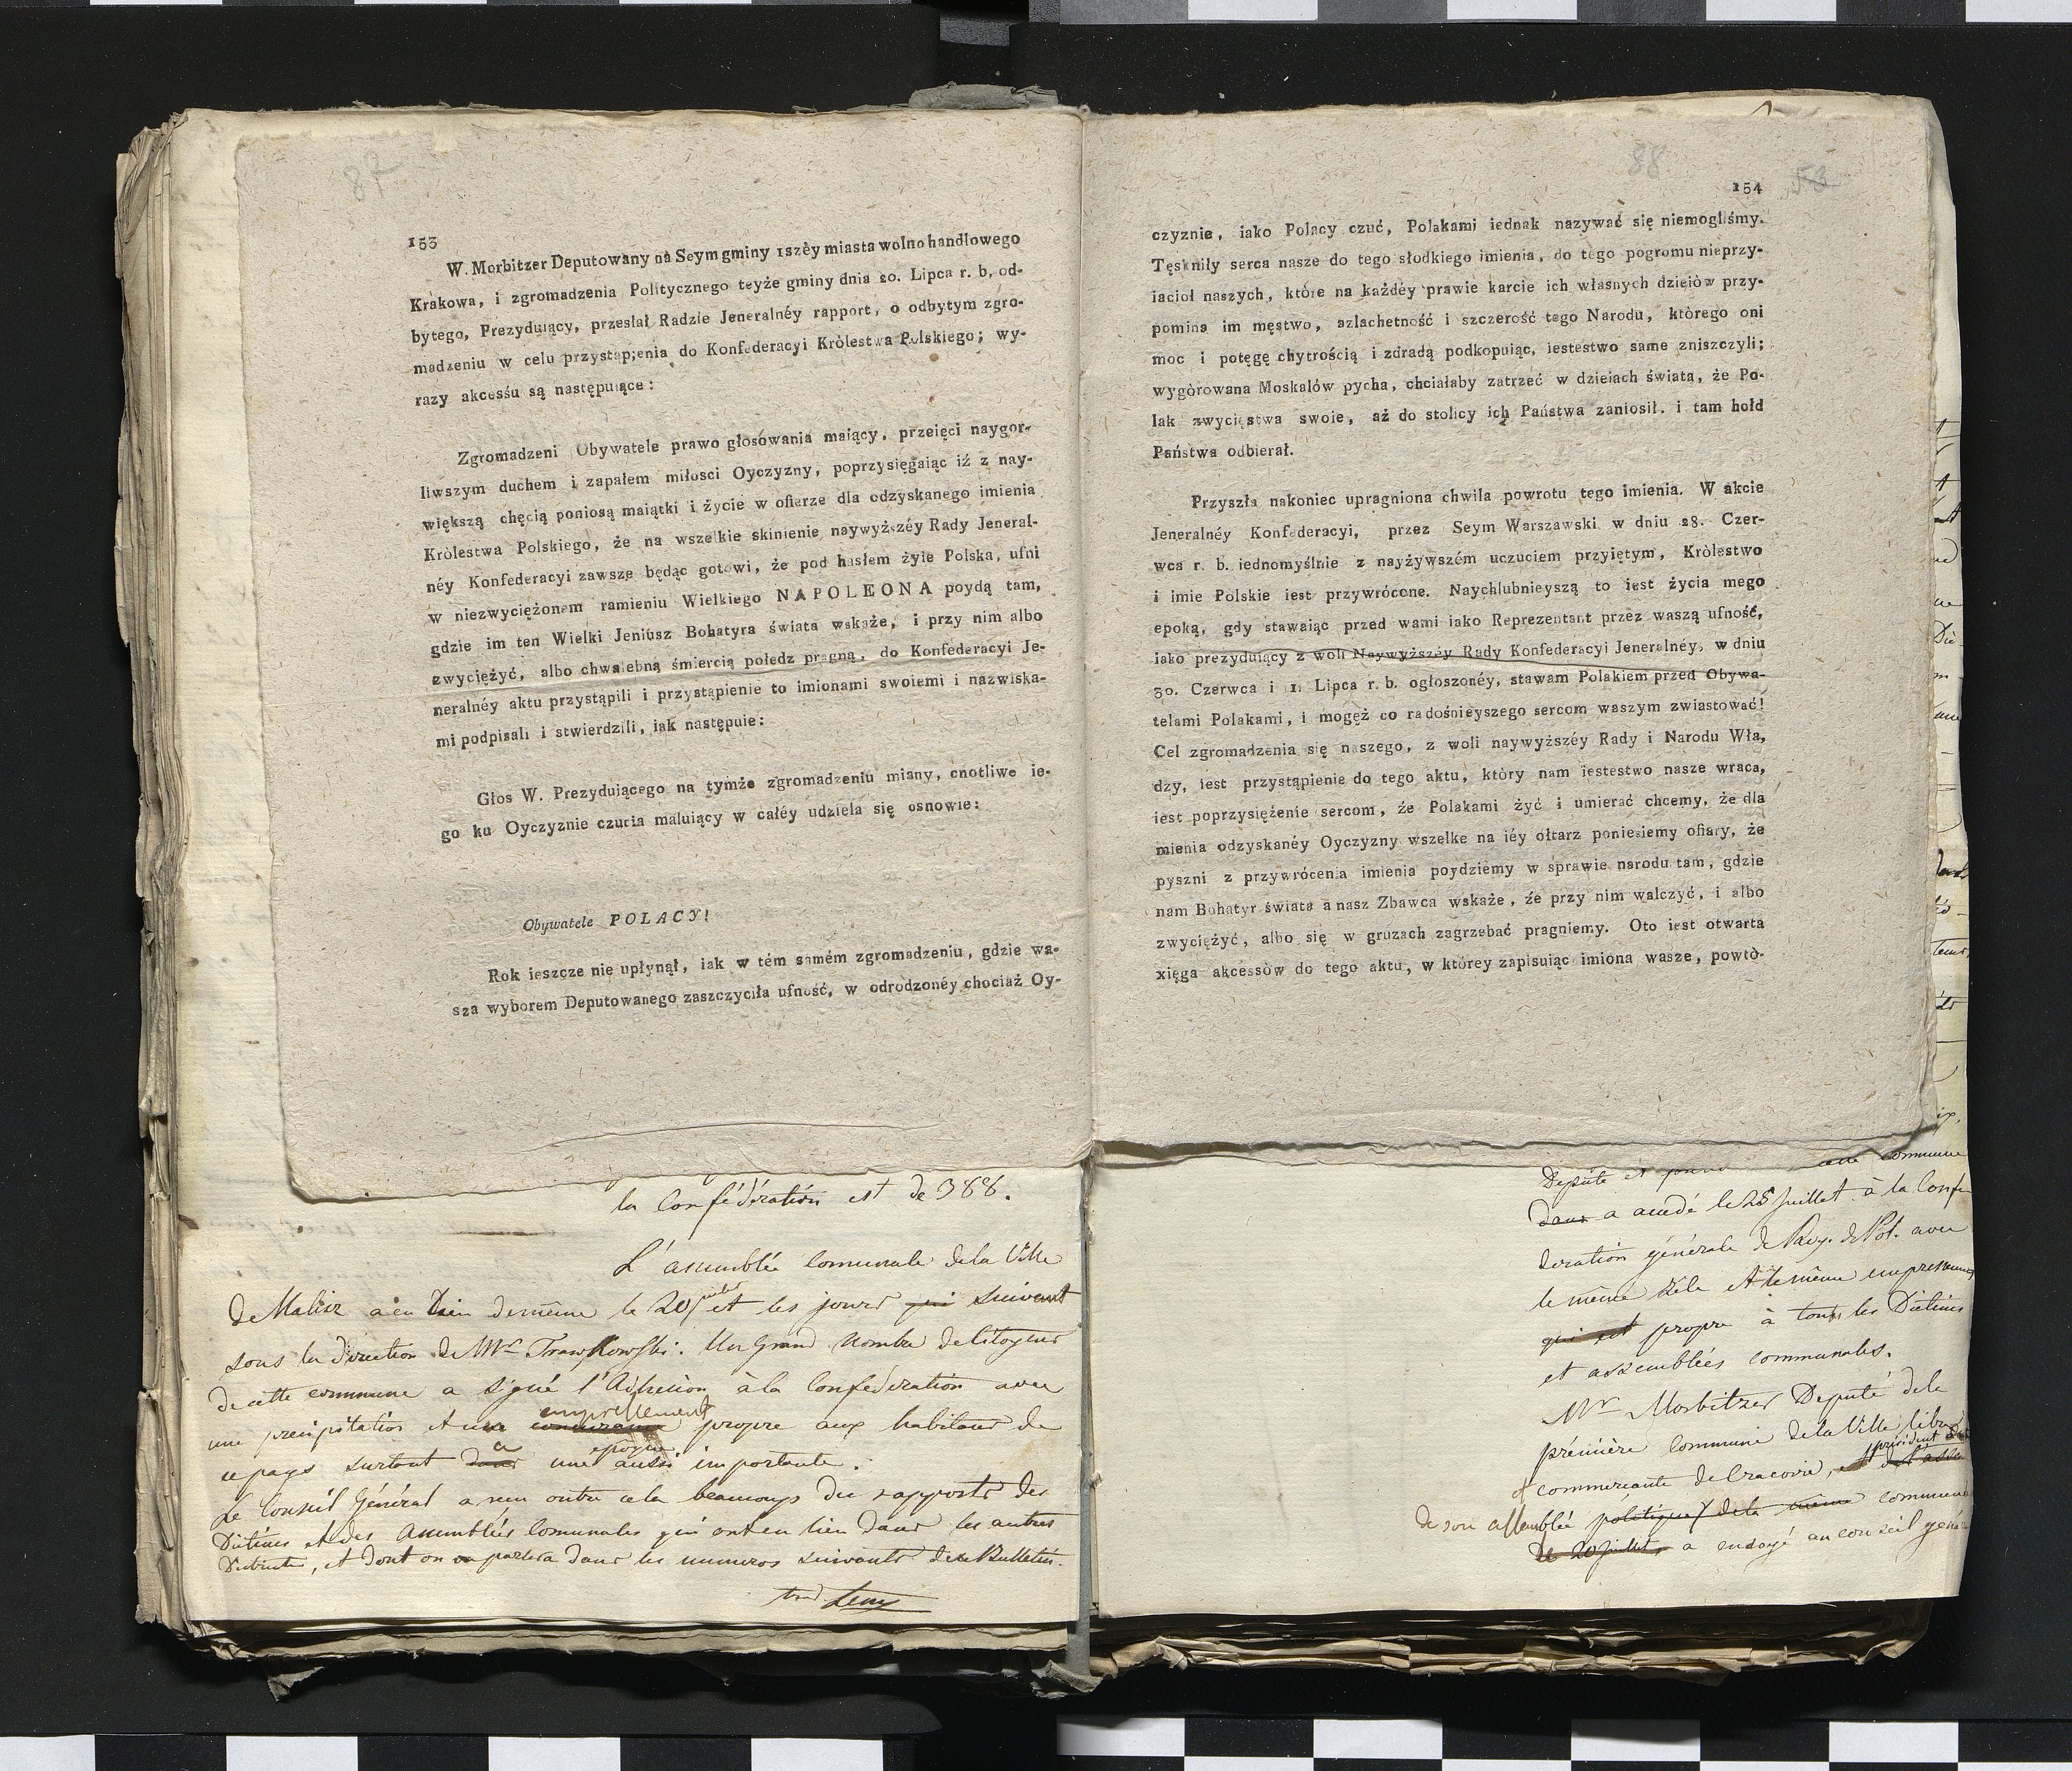 87
153
W. Morbitzer Deputowany na Seym gminy 1széy miasta wolno handlowego
Krakowa, i zgromadzenia Politycznego teyże gminy dnia 20. Lipca r. b, od-
bytego, Prezyduiący, przesłał Radzie Jeneralnéy rapport, o odbytym zgro-
madzeniu w celu przystąp;enia do Konfederacyi Królestwa Polskiego; wy-
razy akcessu są następuiące:
Zgromadzeni Obywatele prawo głosowania maiący, przeięci naygor-
liwszym duchem i zapałem miłosci Oyczyzny, poprzysięgaiąc iż z nay-
większą chęcią poniosą maiątki i życie w ofierze dla odzyskanego imienia
Królestwa Polskiego, że na wszelkie skinienie naywyższéy Rady Jeneral-
néy Konfederacyi zawsze będąc gotowi, że pod hasłem żyie Polska, ufni
w niezwyciężonem ramieniu Wielkiego NAPOLEONA poydą tam,
gdzie im ten Wielki Jeniusz Bohatyra świata wskaże, i przy nim albo
zwyciężyć, albo chwalebną śmiercią poledz pragną, do Konfederacyi Je-
neralnéy aktu przystąpili i przystąpienie to imionami swoiemi i nazwiska-
mi podpisali i stwierdzili, iak następuie:
Głos W. Prezyduiącego na tymże zgromadzeniu miany, cnotliwe ie-
go ku Oyczyznie czucia maluiący w całéy udziela się osnowie:
Obywatele POLACY!
Rok ieszcze nie upłynął, iak w tém samém zgromadzeniu, gdzie wa-
sza wyborem Deputowanego zaszczyciła ufność, w odrodzonéy chociaż Oy-
la Confédération est de 388.
L'assemblée Communale de la Ville
de Kalisz a eu lieu de même le 20 juillet et les jours qui suivent
sous la direction de Mr Trawkowski. Un grand nombre de Citoyens
de cette commune a signé l'Adhesion à la Confédération avec
une precipitation et un empressement propre aux habitans de
ce pays surtout dans à une epoque aussi importante.
Le Conseil Général a reçu outre cela beaucoup des rapports des
Diétines et des Assemblées Communales qui ont eu lieu dans les autres
Districts, et dont on parlera dans les numeros suivants de ce Bulletin.
88
53
154
czyznie, iako Polacy czuć, Polakami iednak nazywać się niemogliśmy.
Tęskniły serca nasze do tego słodkiego imienia, do tego pogromu nieprzy-
iacioł naszych, które na każdéy prawie karcie ich własnych dzieiòw przy-
pomina im męstwo, szlachetność i szczerość tego Narodu, którego oni
moc i potęgę chytrością i zdradą podkopuiąc, iestestwo same zniszczyli;
wygòrowana Moskalów pycha, chciałaby zatrzeć w dzieiach świata, że Po-
lak zwycięstwa swoie, aż do stolicy ich Państwa zaniosił. i tam hołd
Państwa odbierał.
Przyszła nakoniec upragniona chwila powrotu tego imienia. W akcie
Jeneralnéy Konfederacyi, przez Seym Warszawski w dniu 28. Czer-
wca r. b. iednomyślnie z nayżywszém uczuciem przyiętym, Królestwo
i imie Polskie iest przywrócone. Naychlubnieyszą to iest życia mego
epoką, gdy stawaiąc przed wami iako Reprezentant przez waszą ufność,
iako prezyduiący z woli Naywyższéy Rady Konfederacyi Jeneralnéy, w dniu
30. Czerwca i 1. Lipca r. b. ogłoszonéy, stawam Polakiem przed Obywa-
telami Polakami, i mogęż co radośnieyszego sercom waszym zwiastować!
Cel zgromadzenia się naszego, z woli naywyższéy Rady i Narodu Wła,
dzy, iest przystąpienie do tego aktu, który nam iestestwo nasze wraca,
iest poprzysiężenie sercom, że Polakami żyć i umierać chcemy, że dla
mienia odzyskanéy Oyczyzny wszelke na iéy ołtarz poniesiemy ofiary, że
pyszni z przywrócenia imienia poydziemy w sprawie narodu tam, gdzie
nam Bohatyr świata a nasz Zbawca wskaże, że przy nim walczyć, i albo
zwyciężyć, albo się w gruzach zagrzebać pragniemy. Oto iest otwarta
xięga akcessòw do tego aktu, w którey zapisuiąc imiona wasze, powtò-
Député et commune
dans a accedé le 25 Juillet à la Confe
deration générale du Roy. de Pol. avec
le même zèle et le même empressement
qui est propre à tous les Diétines
et assemblées communales.
Mr Morbitzer Deputé de la
première commune de la Ville libre
président de
et commerciante de Cracovie,
de son assemblée politique de la même commune
de 20 juillet, a envoyé au conseil géné